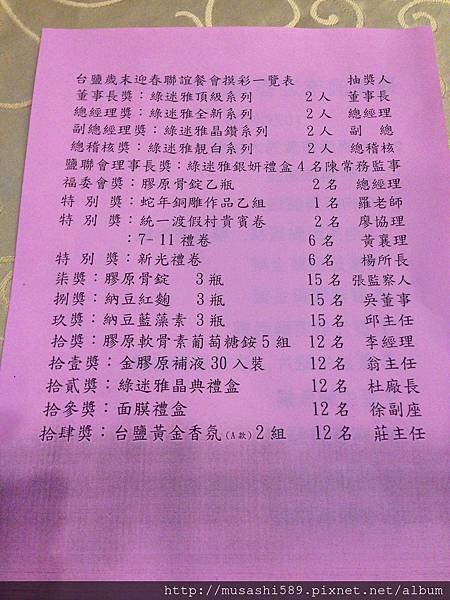 台鹽歲末迎春聯誼餐會摸彩一覽表 抽獎人
董事長獎：綠迷雅頂級系列 2人 董事長
總經理獎：綠迷雅全新系列 2人 總經理
副總經理獎：綠迷雅晶鑽系列 2人 副 總
總稽核獎：綠迷雅靚白系列 2人 總稽核
鹽聯會理事長獎：綠迷雅銀妍禮盒4名陳常務監事
福委會獎：膠原骨錠乙瓶 2名 總經理
特 別 獎：蛇年銅雕作品乙組 1名 羅老師
特 別 獎：統一渡假村貴賓卷 2名 廖協理
：7-11禮卷 6名 黃襄理
特 別 獎：新光禮卷 6名 楊所長
柒獎：膠原骨錠 3瓶 15名 張監察人
捌獎：納豆紅麴 3瓶 15名 吳董事
玖獎：納豆藍藻素 3瓶 15名 邱主任
拾獎：膠原軟骨素葡萄糖銨5組 12名 李經理
拾壹獎：金膠原補液30入裝 12名 翁主任
拾貳獎：綠迷雅晶典禮盒 12名 杜廠長
拾參獎：面膜禮盒 12名 徐副座
拾肆獎：台鹽黃金香氛(A款)2組 12名 莊主任
http://musashi589.pixnet.net/album